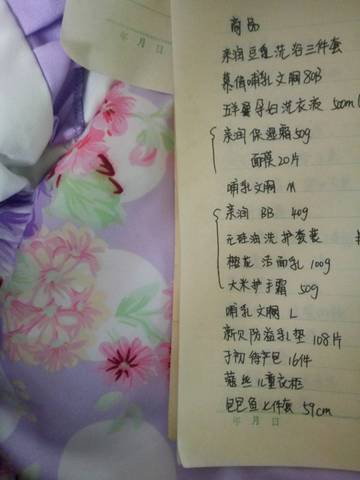 年 月 日
商品
亲润豆乳洗浴三件套
慕倩哺乳文胸80B
五羊孕妇洗衣液 500ml
亲润保湿霜50g
面膜20片
哺乳文胸 M
亲润 BB 40g
无硅油洗护套装
橙花洁面乳100g
大米护手霜 50g
哺乳文胸 L
新贝防溢乳垫 108片
子初待产包 16件
蔻丝儿童衣柜
包包鱼七件套 59cm
年 月 日